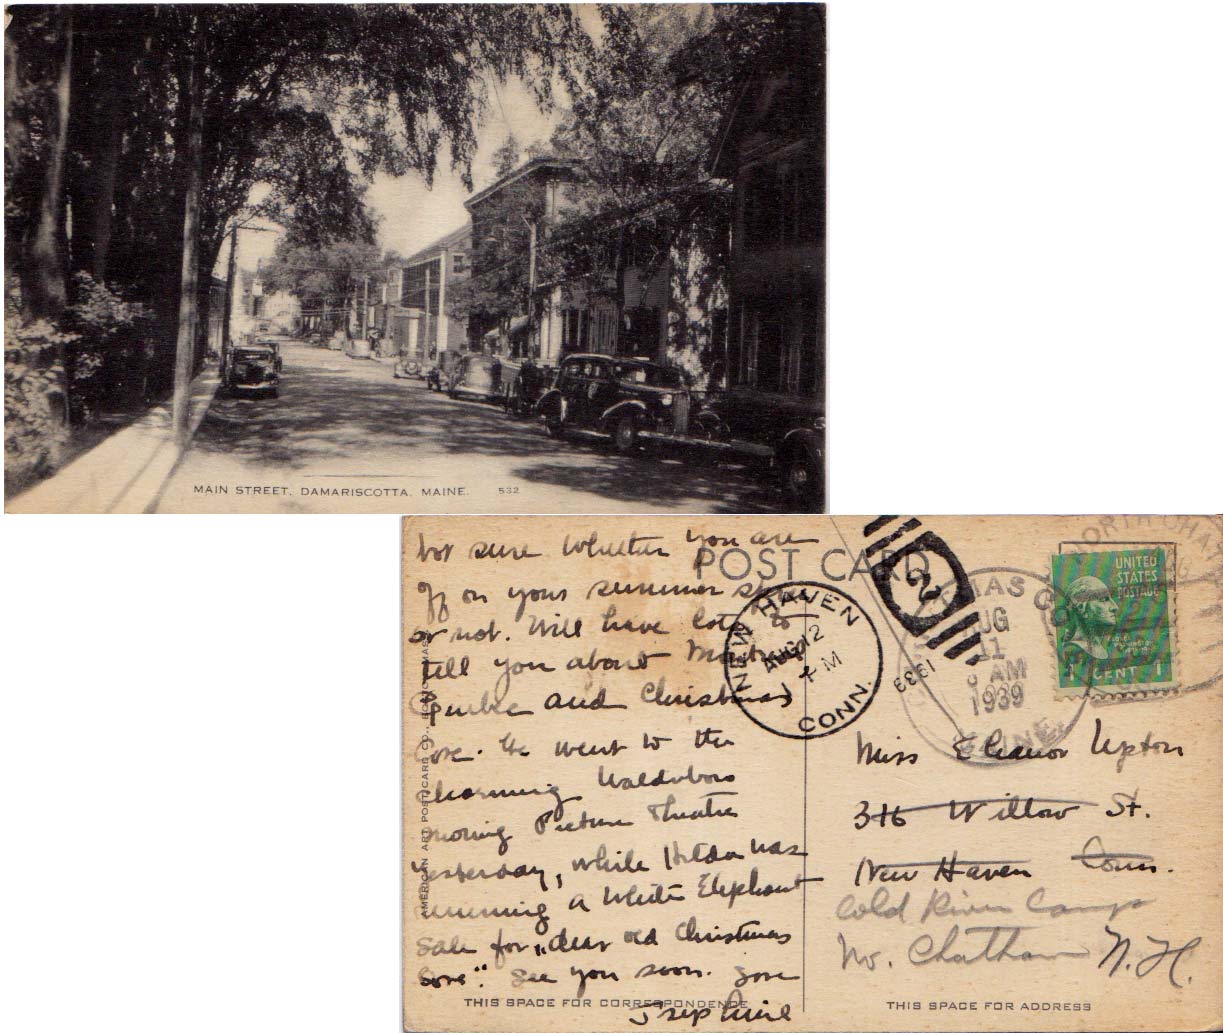 MAIN STREET, DAMARISCOTTA, MAINE. 532
POST CARD
Not sure whether you are
off on your summer
or not. Will have lots to
tell you about
Quebec and Christmas
Cove. We went to the
charming Waldoboro
Moving Picture Theatre
yesterday, while Hilda was
running a White Elephant
sale for "dear old Christmas
Cove." See you soon. Love
Josephine
THIS SPACE FOR CORRESPONDENCE
AMERICAN ART POST CARD CO., BOSTON, MASS.
NEW HAVEN
AUG 12
1 PM
CONN.
1939
2
AUG
11
AM
1939
MAINE
UNITED
STATES
POSTAGE
1 CENT 1
Miss Eleanor Upton
316 Willow St.
New Haven Conn.
Cold River Camp
No. Chatham N.H.
THIS SPACE FOR ADDRESS